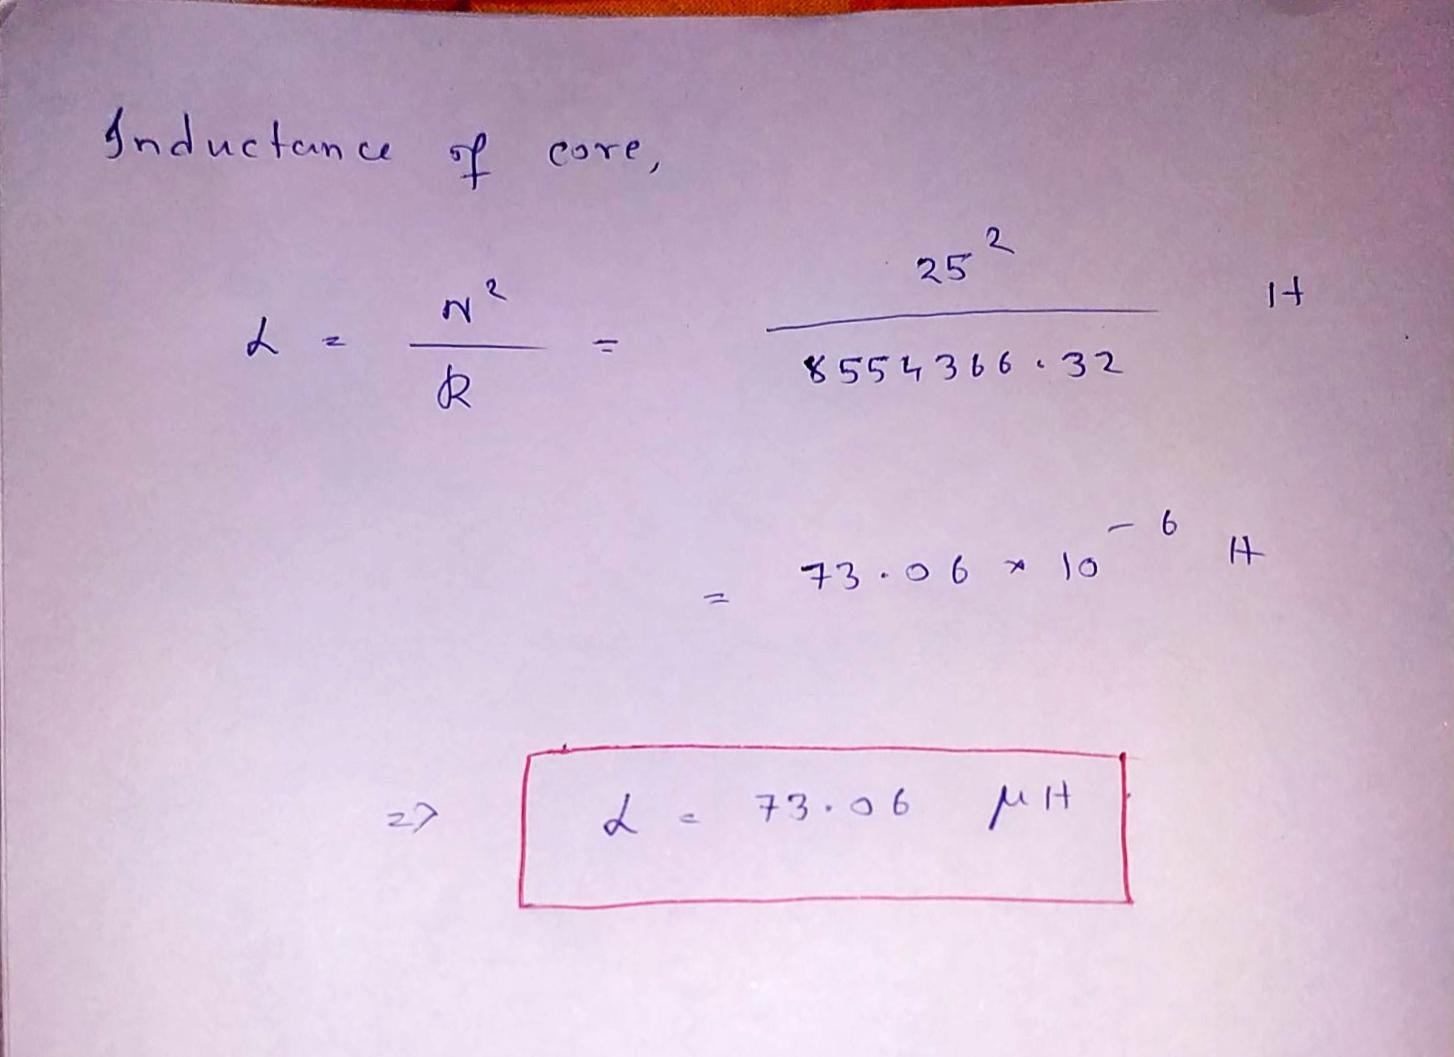 Inductance of core,
L = N²/R = 25²/8554366.32 H
= 73.06 × 10⁻⁶ H
=> L = 73.06 μH